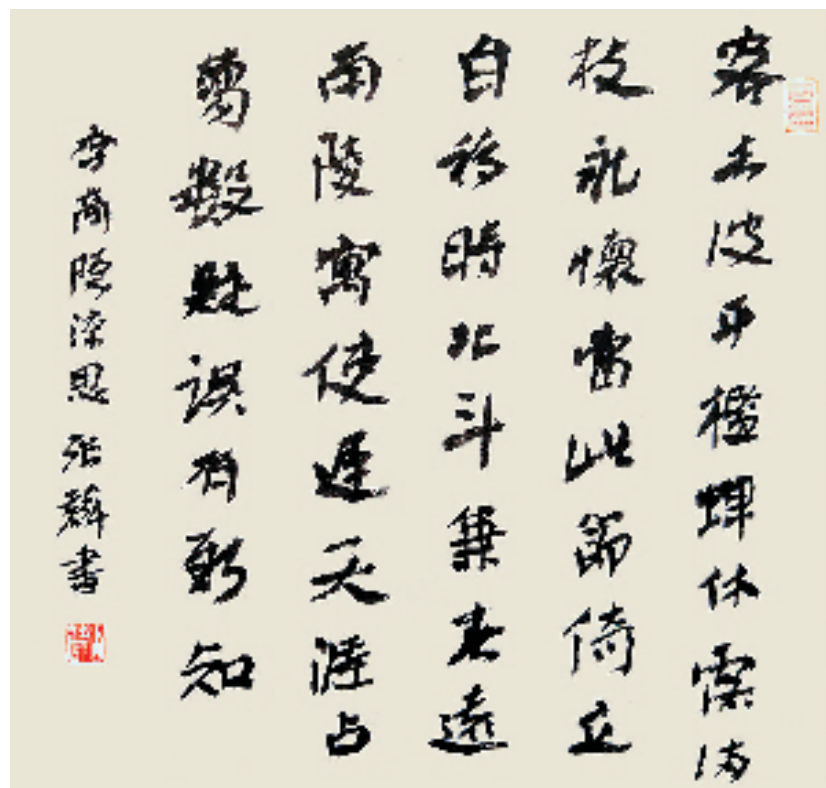 客去波平檻蟬休露满
枝永懷當此節倚立
自移時北斗兼春遠
南陵寓使遲天涯占
夢數疑誤有新知
李商隐凉思 张書